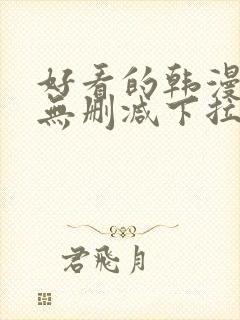 好看的韩漫
無删减下拉
君飛月